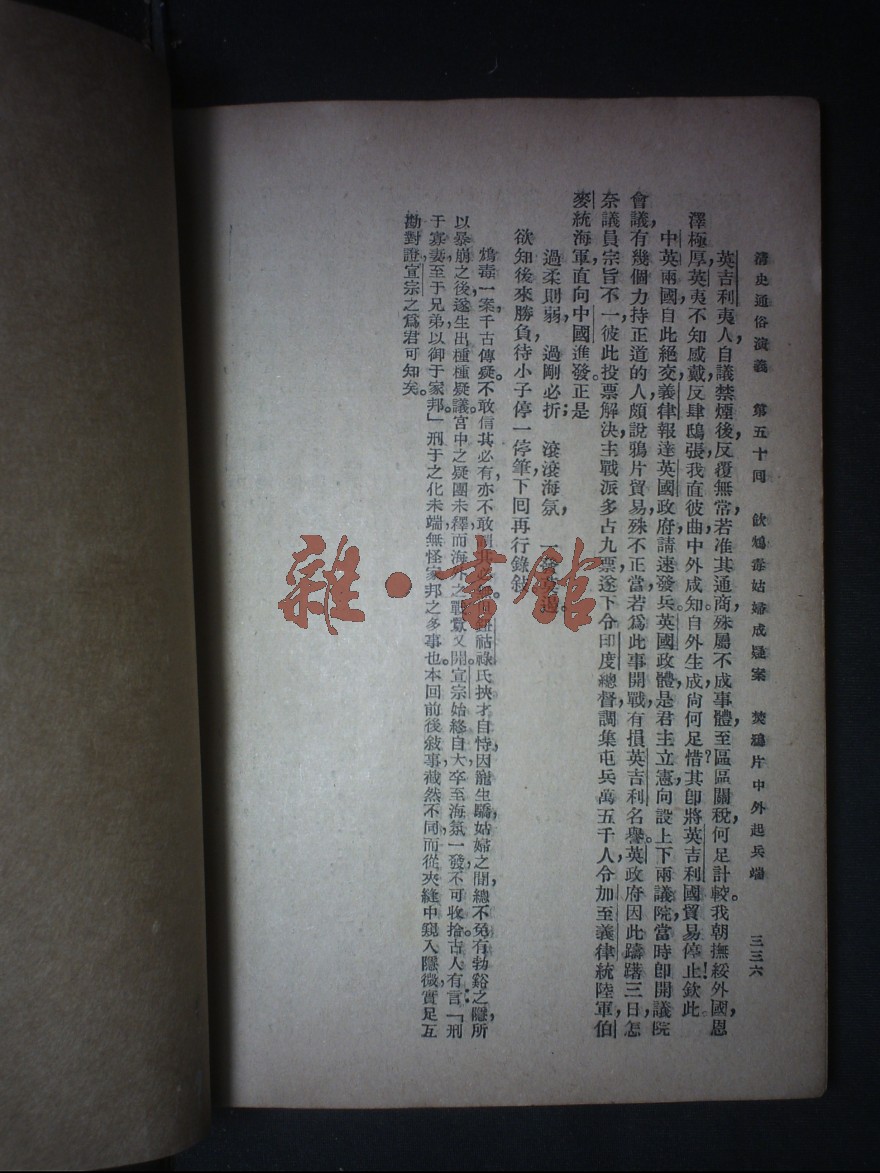 清史通俗演義　第五十回　飲鴆毒姑婦成疑案　焚鴉片中外起兵端　三三六
英吉利夷人，自議禁煙後，反覆無常，若准其通商，殊屬不成事體，至區區關稅，何足計較。我朝撫綏外國，恩
澤極厚，英夷不知感戴，反肆鴟張，我直彼曲，中外咸知。自外生成，尚何足惜？其卽將英吉利國貿易停止！欽此。
中英兩國，自此絕交，義律報達英國政府，請速發兵。英國政體，是君主立憲，向設上下兩議院，當時卽開議院
會議，有幾個力持正道的人，頗說鴉片貿易，殊不正當，若爲此事開戰，有損英吉利名譽。英政府因此躊躇三日，怎
奈議員宗旨不一，彼此投票解決，主戰派多占九票，遂下令印度總督，調集屯兵萬五千人，令加至義律統陸軍，伯
麥統海軍，直向中國進發。正是
過柔則弱，過剛必折；滾滾海氛，一發
欲知後來勝負，待小子停一停筆，下囘再行錄敍。
鴆毒一案，千古傳疑。不敢信其必有，亦不敢
祜祿氏挾才自恃，因寵生驕，姑婦之間，總不免有勃谿之隱，所
以暴崩之後，遂生出種種疑議。宮中之疑團未釋，而海外之戰釁又開。宣宗始終自大，卒至海氛一發，不可收拾。古人有言：「刑
于寡妻，至于兄弟，以御于家邦」刑于之化未端，無怪家邦之多事也。本回前後敍事，截然不同，而從夾縫中窺入隱微，實足互
勘對證，宣宗之爲君可知矣。
雜·書館